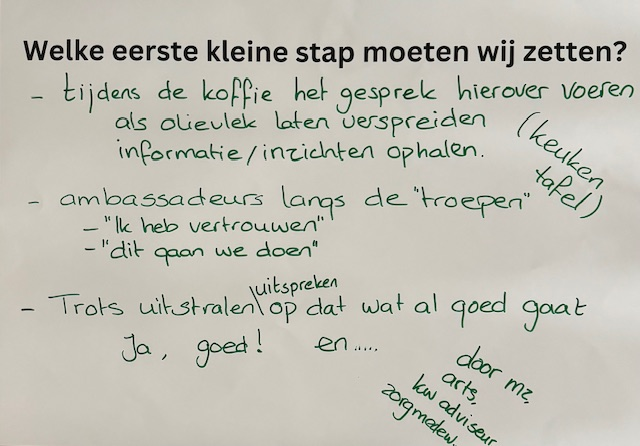 Welke eerste kleine stap moeten wij zetten?
- tijdens de koffie het gesprek hierover voeren
als olievlek laten verspreiden
informatie/inzichten ophalen.
(keuken
tafel)
- ambassadeurs langs de "troepen"
- "Ik heb vertrouwen"
- "dit gaan we doen"
uitspreken
- Trots uitstralen\op dat wat al goed gaat
Ja, goed! en.....
door mz,
arts,
kw adviseur
zorgmedew.